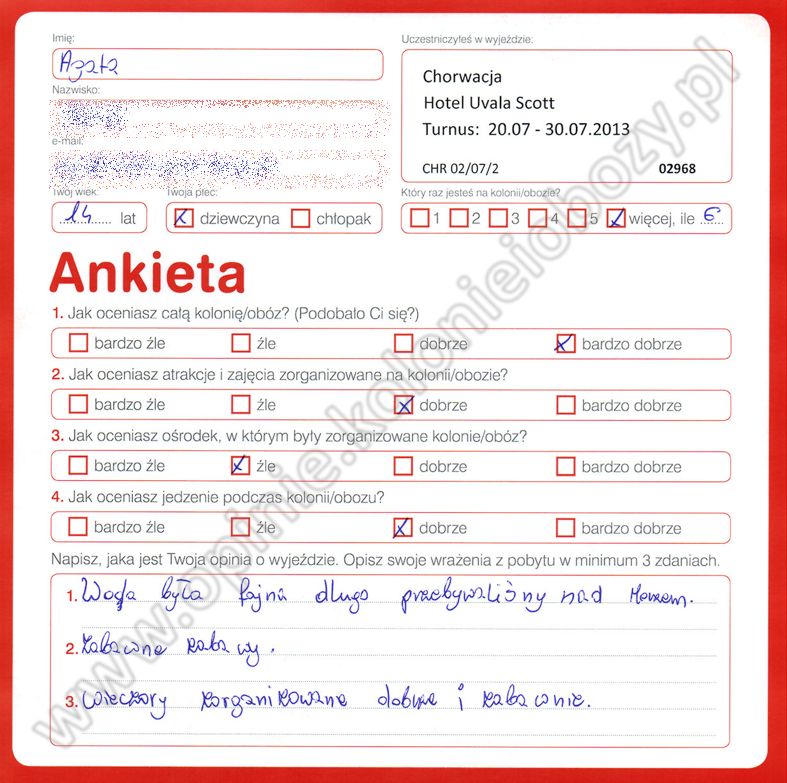 Imię:
Agata
Nazwisko:
e-mail:
Twój wiek:
14 lat
Twoja płeć:
dziewczyna chłopak
Uczestniczyłeś w wyjeździe:
Chorwacja
Hotel Uvala Scott
Turnus: 20.07 - 30.07.2013
CHR 02/07/2 02968
Który raz jesteś na kolonii/obozie?
1 2 3 4 5 więcej, ile 6
Ankieta
1. Jak oceniasz całą kolonię/obóz? (Podobało Ci się?)
bardzo źle źle dobrze bardzo dobrze
2. Jak oceniasz atrakcje i zajęcia zorganizowane na kolonii/obozie?
bardzo źle źle dobrze bardzo dobrze
3. Jak oceniasz ośrodek, w którym były zorganizowane kolonie/obóz?
bardzo źle źle dobrze bardzo dobrze
4. Jak oceniasz jedzenie podczas kolonii/obozu?
bardzo źle źle dobrze bardzo dobrze
Napisz, jaka jest Twoja opinia o wyjeździe. Opisz swoje wrażenia z pobytu w minimum 3 zdaniach.
1. Woda była fajna długo przebywaliśmy nad Morzem.
2. Zabawne zabawy.
3. Wieczory zorganizowane dobrze i zabawnie.
www.opinie.kolonieiobozy.pl